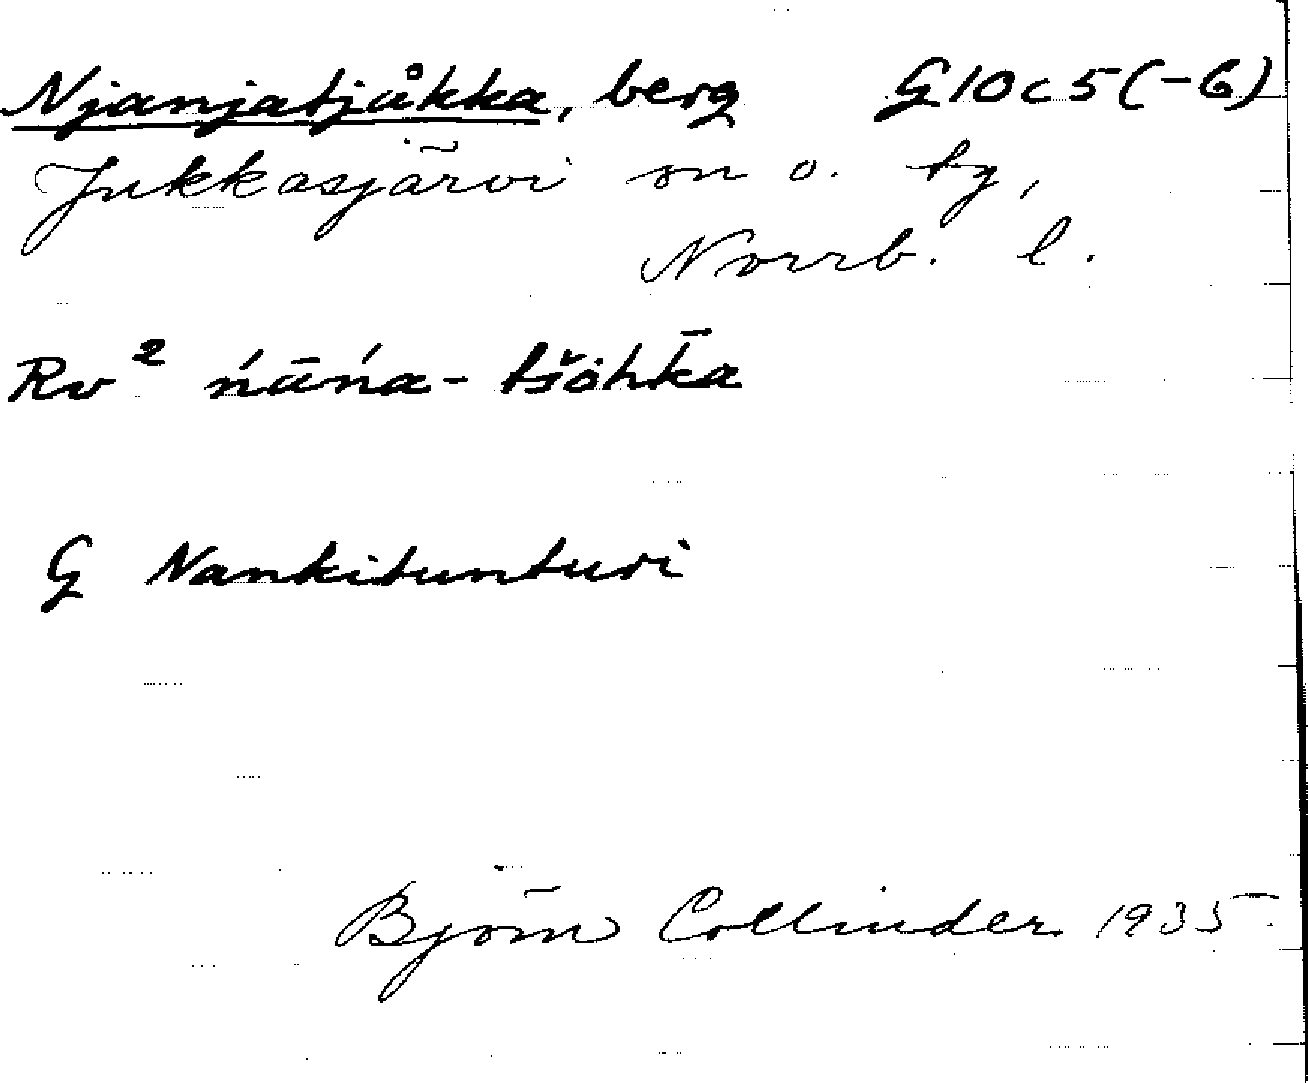 Njanjatjåkka, berg G10c5(-6)
Jukkasjärvi sn o. tg,
Norrb. l.
Rv² ńāńa-tšŏh̄ka
G Nankitunturi
Björn Collinder 1935